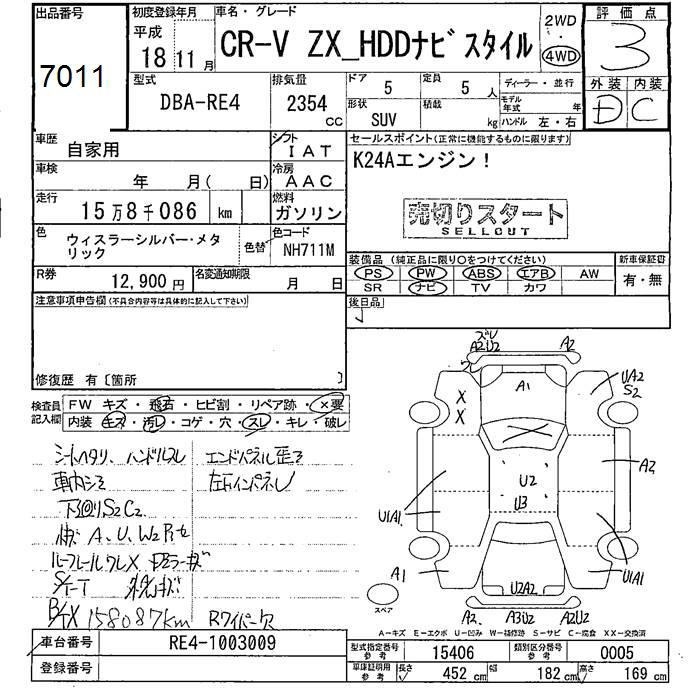 出品番号
7011
初度登録年月
平成
18 11月
車名・グレード
CR-V ZX_HDDナビスタイル
2WD
・
4WD
評価点
3
型式
DBA-RE4
排気量
2354
cc
ドア
5
定員
5人
形状
SUV
積載
kg
ディーラー・並行
モデル年式 年
ハンドル 左・右
外装 内装
D C
車歴
自家用
シフト
IAT
セールスポイント(正常に機能するものに限ります)
K24Aエンジン!
車検
年 月( 日)
冷房
AAC
走行
15万8千086 km
燃料
ガソリン
売切りスタート
SELLOUT
色
ウィスラーシルバー・メタリック
色替
色コード
NH711M
装備品(純正品に限り○をつけてください)
PS PW ABS エアB AW
SR ナビ TV カワ
新車保証書
有・無
R券
12,900円
名変通知期限
月 日
後日品
注意事項申告欄(不具合内容等は具体的に記入して下さい)
修復歴 有〔箇所 〕
検査員記入欄
FW キズ・飛石・ヒビ割・リペア跡・×要
内装 キズ・汚レ・コゲ・穴・スレ・キレ・破レ
シートヘタリ、ハンドルスレ
車内シミ
下回りS2C2
A、U、W2
ルーフレールワレX
158087km
エンドパネル歪ミ
Rワイパー欠
A2U2
A2
A1
UA2
S2
X
X
A2
U2
U3
U1A1
U1A1
A1
U2A2
A2
A3U2
A2U2
スペア
A-キズ E-エクボ U-凹み W-補修跡 S-サビ C-腐食 XX-交換済
車台番号
RE4-1003009
登録番号
型式指定番号
参考
15406
類別区分番号
参考
0005
車庫証明用
参考
長さ
452 cm
幅
182 cm
高さ
169 cm